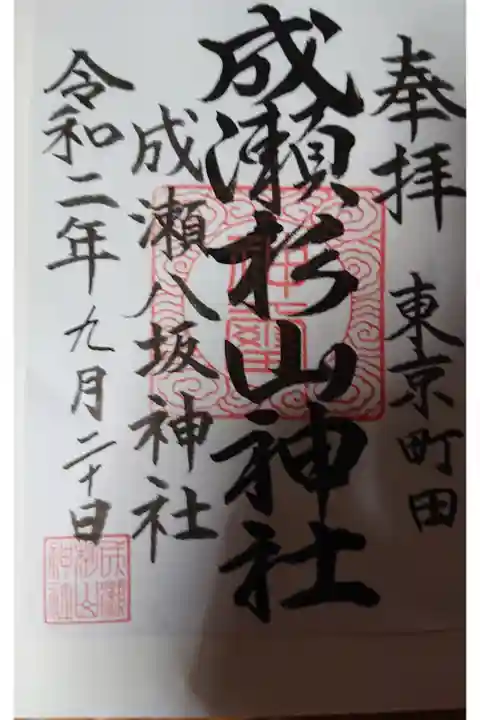 奉拝 東京町田
成瀬杉山神社
成瀬八坂神社
令和二年九月二十日
成瀬
杉山
神社